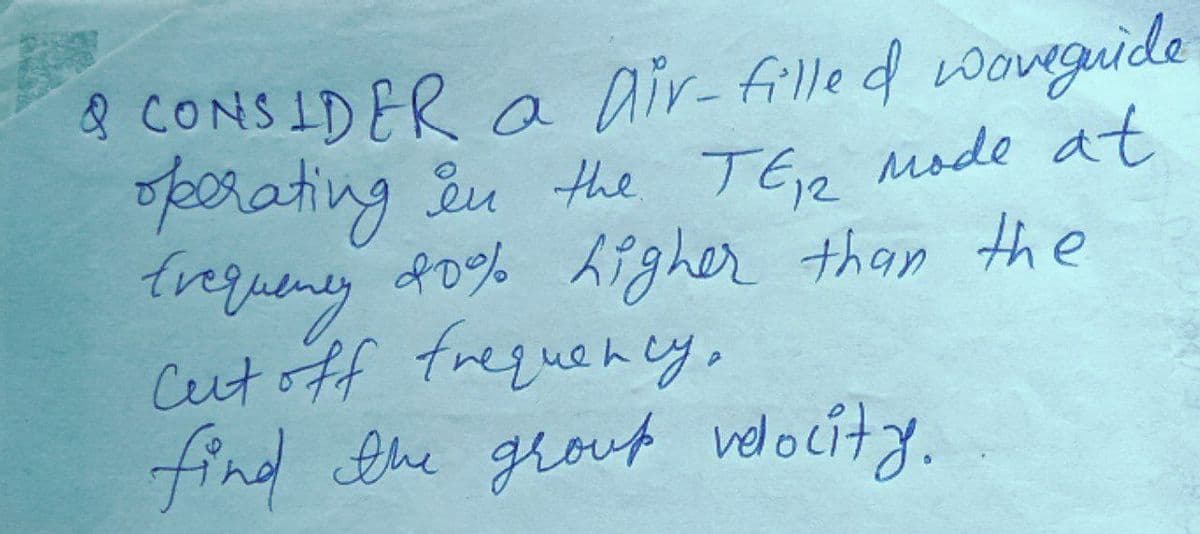 Q CONSIDER a Air-filled waveguide
operating in the TE12 mode at
frequency 20% higher than the
Cut off frequency.
find the group velocity.